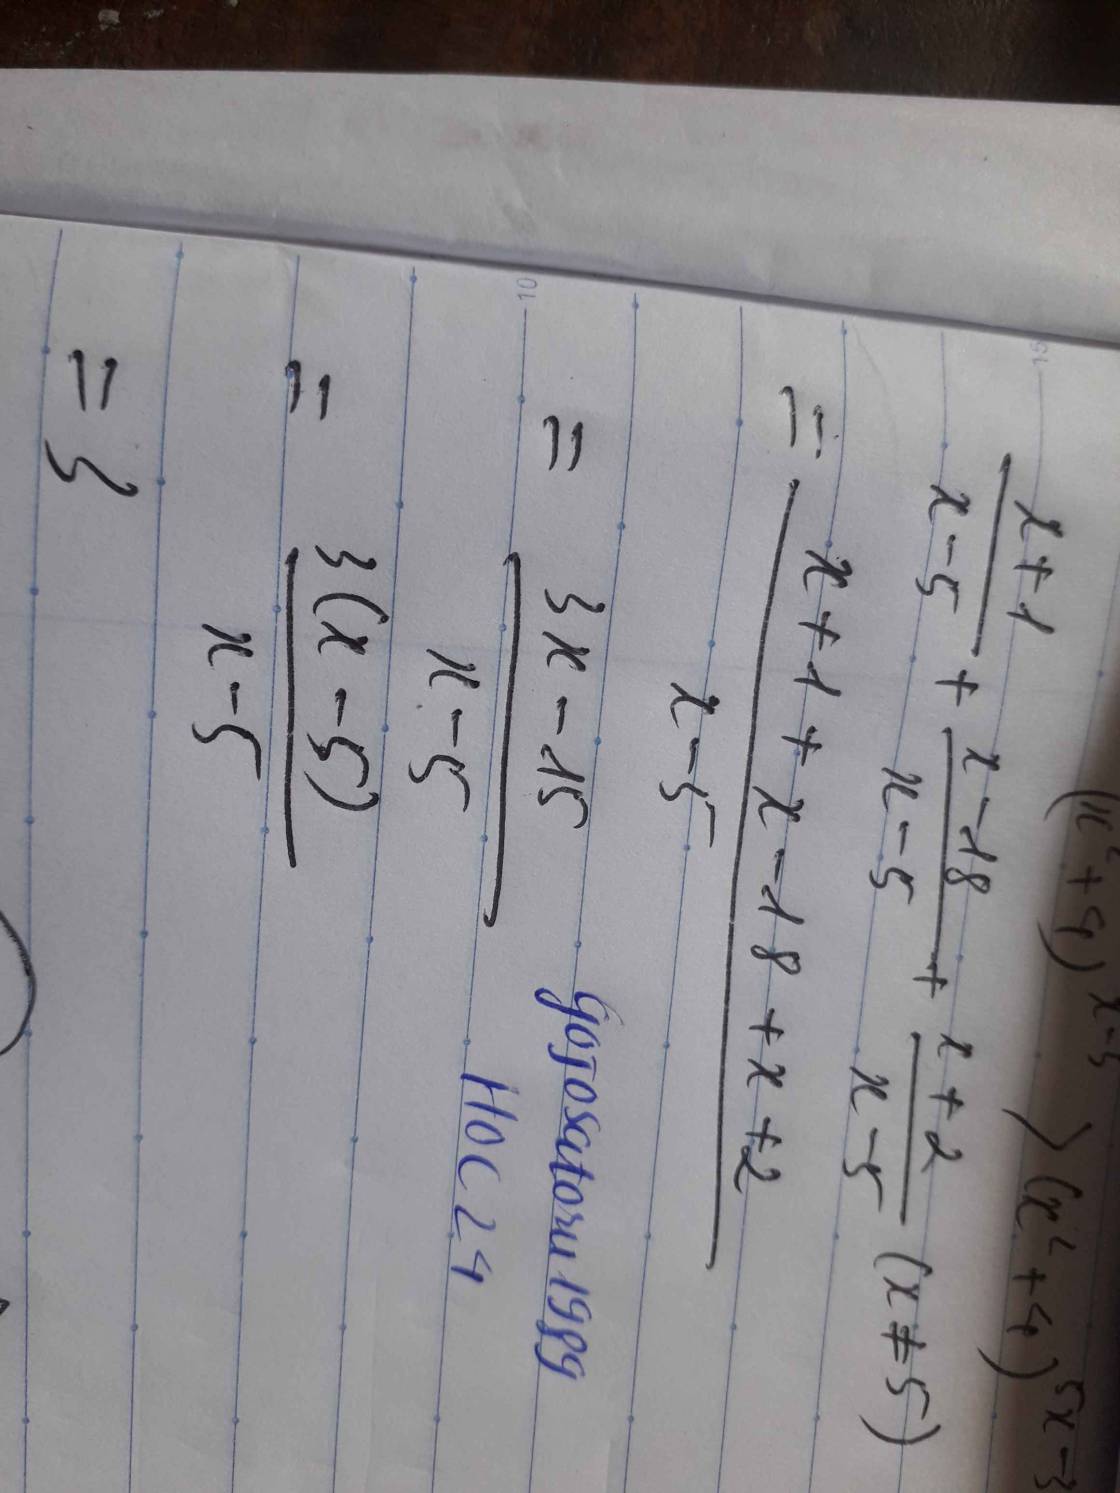 (x²+4)^x-5 > (x²+4)^5x-3
x+1/x-5 + x-18/x-5 + x+2/x-5 (x≠5)
= x+1+x-18+x+2/x-5
= 3x-15/x-5
= 3(x-5)/x-5
= 3
Gojosatoru1989
HOC24
15
10